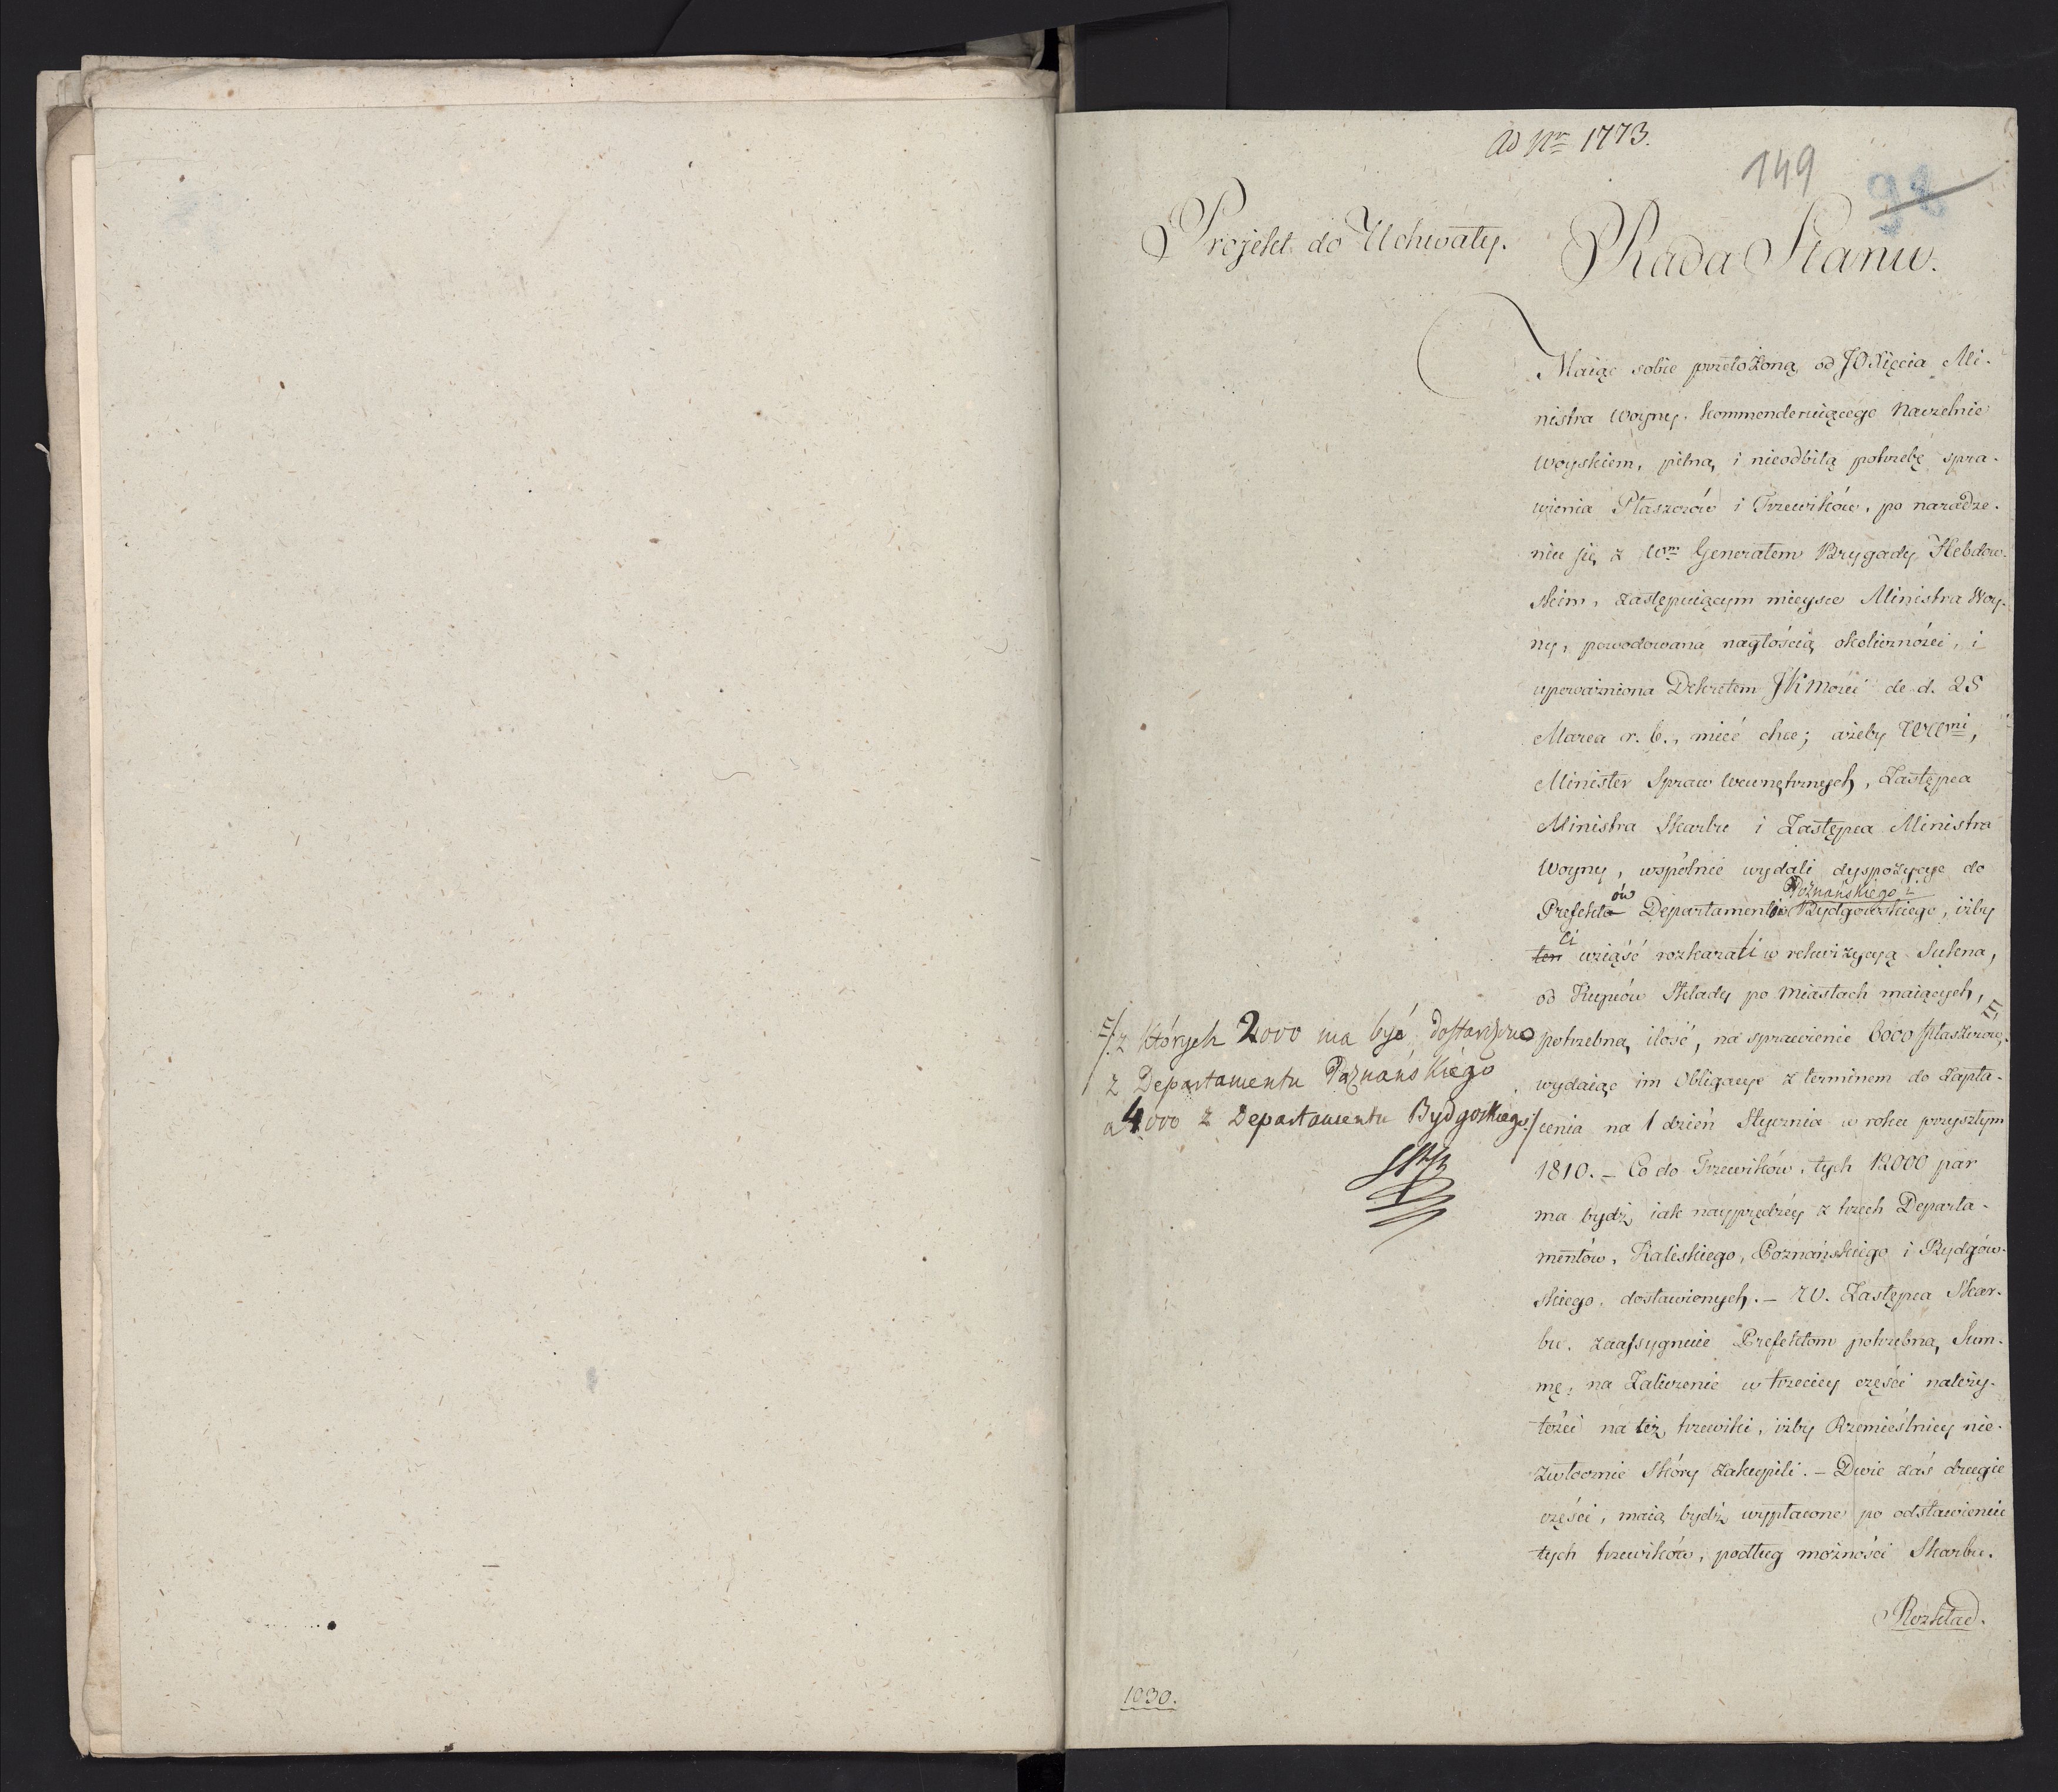 ad Nr 1773.
149
98
Projekt do Uchwały.
Rada Stanu.
Maiąc sobie przełożoną od JOXięcia Mi-
nistra Woyny, kommenderuiącego Naczelnie
Woyskiem, pilną i nieodbitą potrzebę spra-
wienia Płaszczów i Trzewików, po naradze-
niu się z Wm Generałem Brygady Hebdow-
skim, zastępuiącym mieysce Ministra Woy-
ny, powodowana nagłością okoliczności, i
upoważniona Dekretem JKMości de d. 25
Marca r. b., mieć chce; ażeby WWni,
Minister Spraw Wewnętrznych, Zastępca
Ministra Skarbu i Zastępca Ministra
Woyny, wspólnie wydali dyspozycye do
ów Poznańskiego i
Prefekta Departamentów Bydgowskiego, iżby
ci
ten wziąść rozkazali w rekwizycyą Sukna,
od Kupców Składy po Miastach maiących,
potrzebną ilość, na sprawienie 6000 Płaszczow,
wydaiąc im Obligacye z terminem do zapła-
cenia na 1 dzień Stycznia w roku przyszłym
1810. – Co do Trzewików, tych 12000 par
ma bydź iak nayprędzéy z trzech Departa-
mentów, Kaliskiego, Poznańskiego i Bydgów-
skiego, dostawionych. – W. Zastępca Skar-
bu, zaassygnuie Prefektom potrzebną Sum-
mę, na Zaliczenie w trzeciey części należy-
tości na też trzewiki, iżby Rzemieślnicy nie-
zwłocznie Skóry zakupili. – Dwie zaś drugie
części, maią bydź wypłacone po odstawieniu
tych trzewików, podług możności Skarbu.
Rozkład.
z których 2000 ma być dostawiono
z Departamentu Poznańskiego
a 4000 z Departamentu Bydgoskiego
1030.